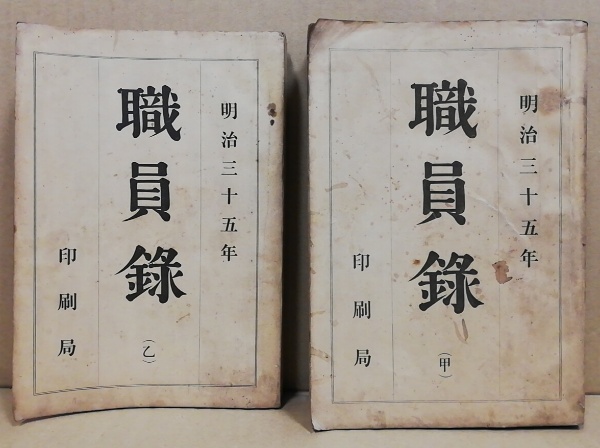 明治三十五年
職員錄
(甲)
印刷局
明治三十五年
職員錄
(乙)
印刷局